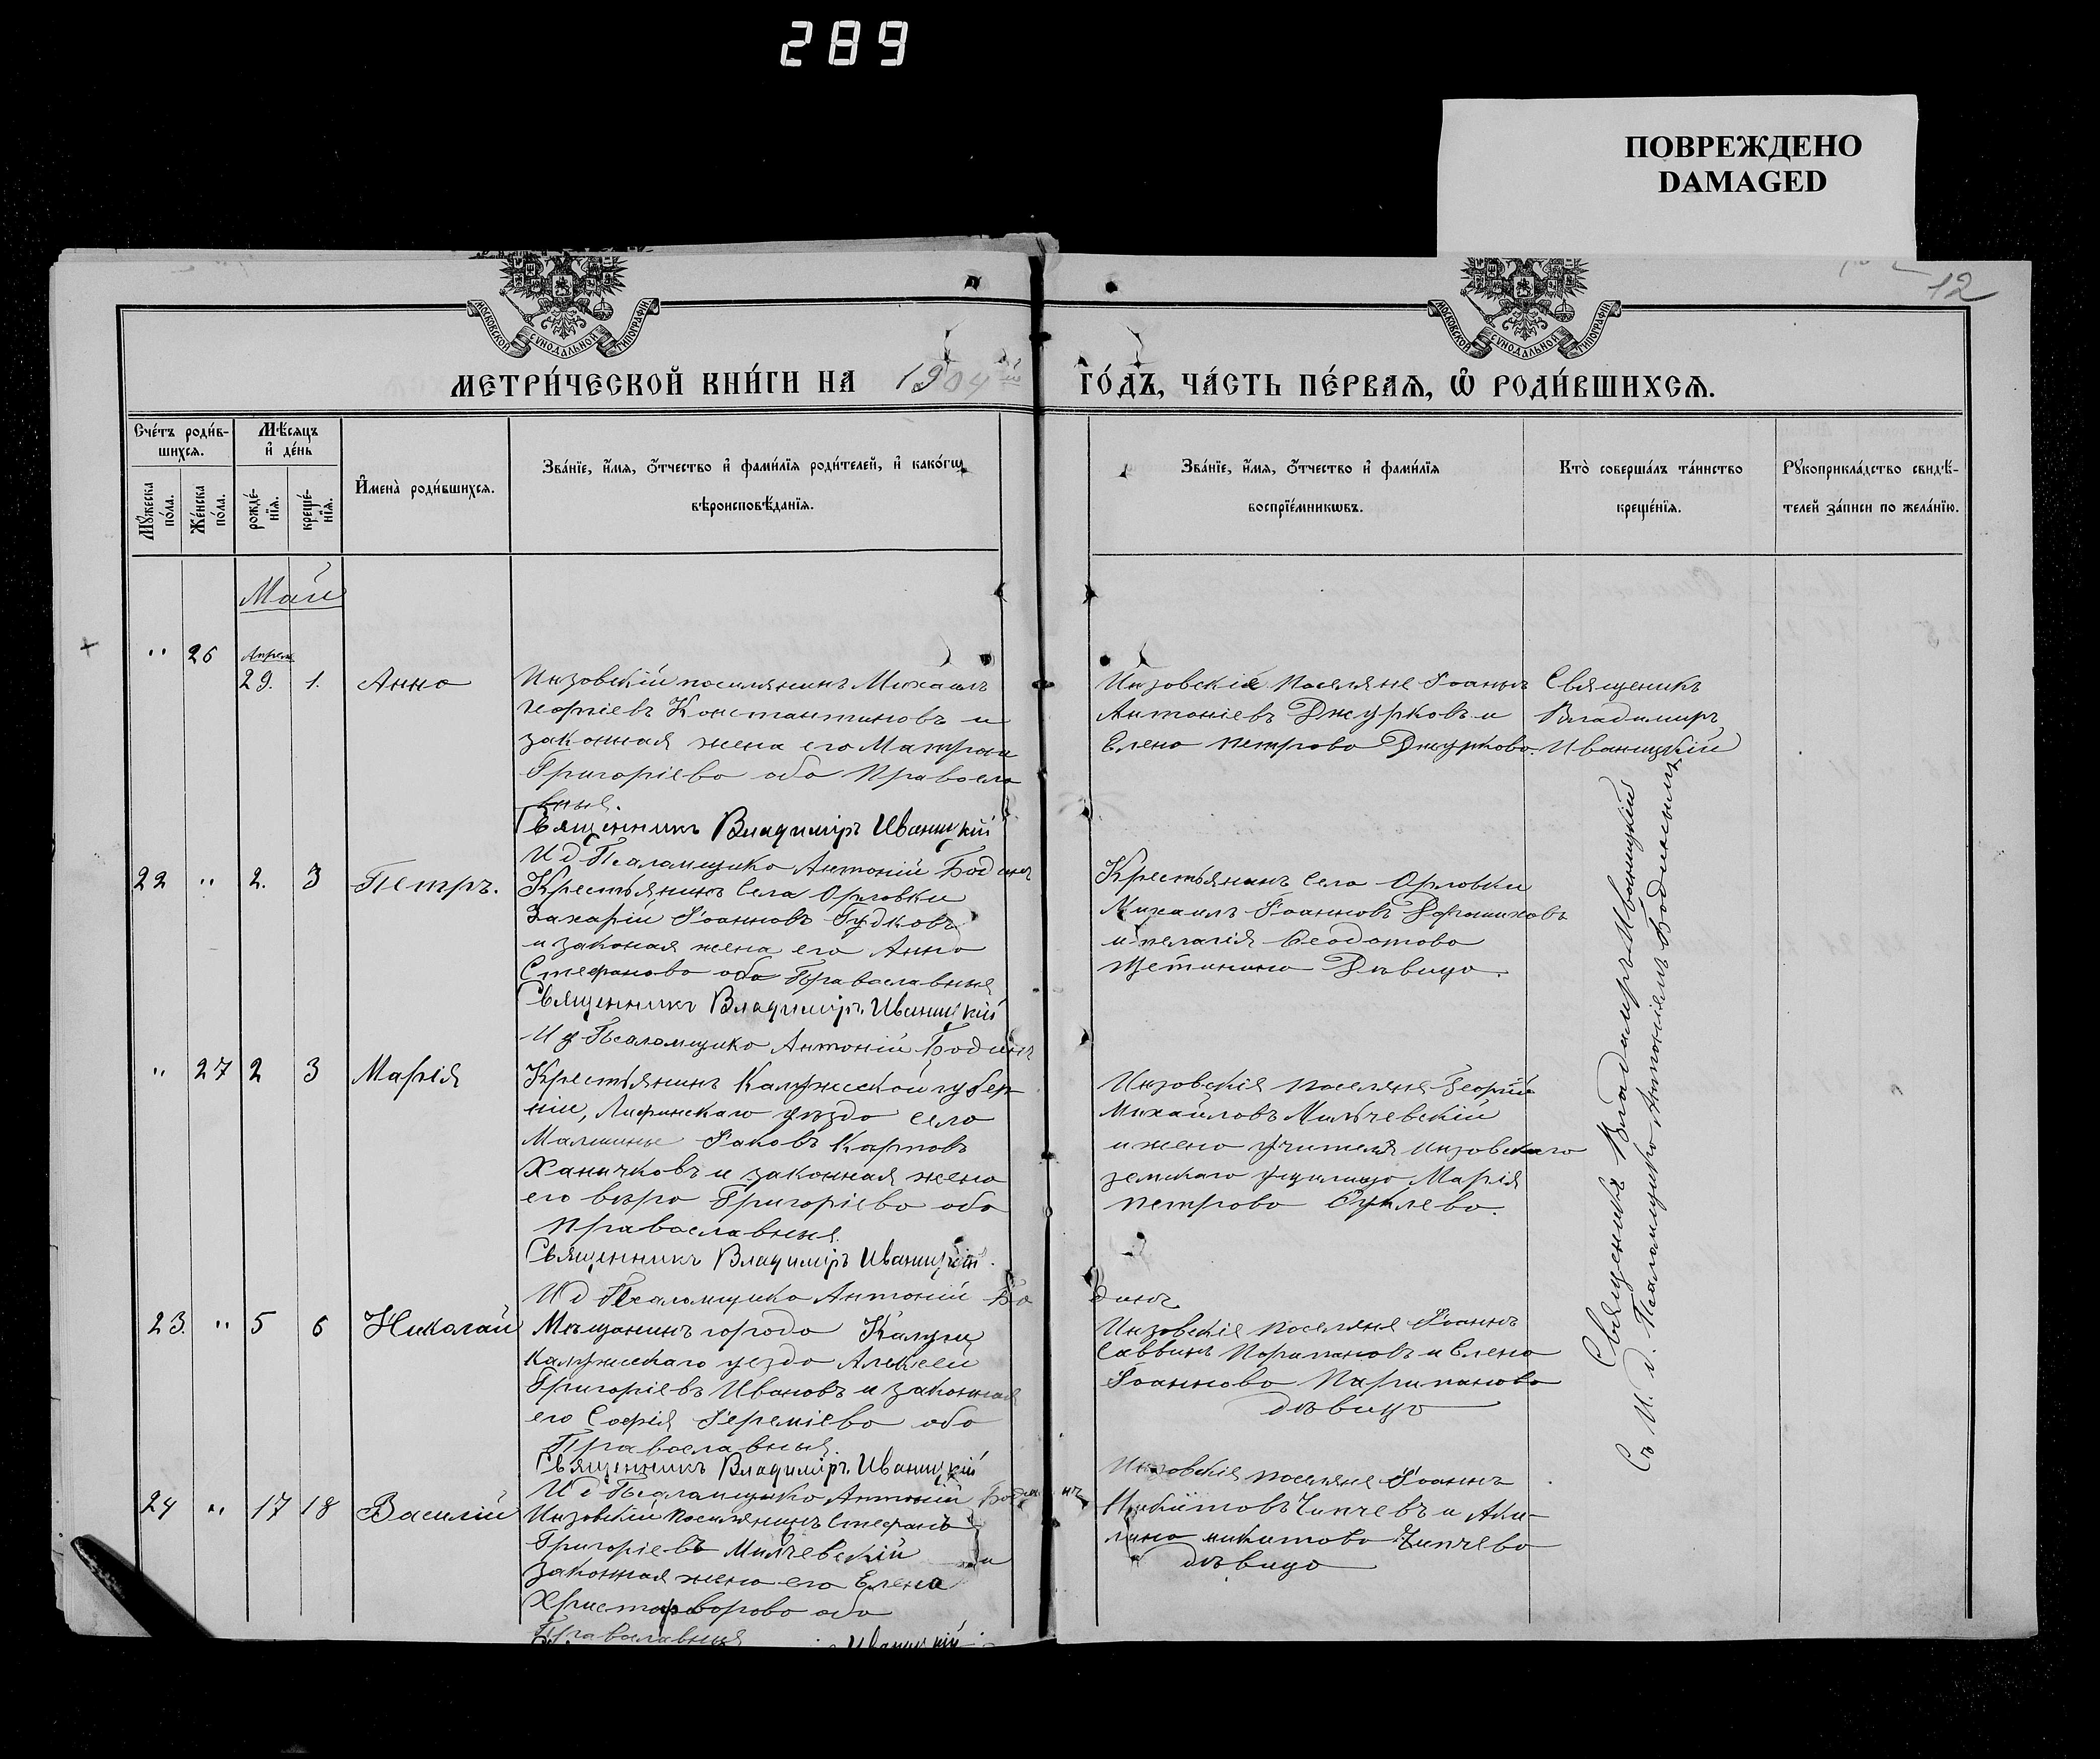 289
ПОВРЕЖДЕНО
DAMAGED
12
МОСКОВСКОЙ СѴНОДАЛЬНОЙ ТИПОГРАФІИ
МОСКОВСКОЙ СѴНОДАЛЬНОЙ ТИПОГРАФІИ
МЕТРИ́ЧЕСКОЙ КНИ́ГИ НА 1904 й ГО́ДЪ, ЧА́СТЬ ПЕ́РВАѦ, Ѽ РОДИ́ВШИХСѦ.
Сче́тъ роди́в-
шихсѧ.
Мꙋ́жеска по́ла.
Же́нска по́ла.
Мѣ́сѧцъ
и҆ де́нь
рожде́-
нїѧ.
креще́-
нїѧ.
И҆мена̀ роди́вшихсѧ.
Зва́нїе, и҆́мѧ, ѻ҆́тчество и҆ фами́лїѧ роди́телей, и҆ како́гѡ
вѣроисповѣ́данїѧ.
Зва́нїе, и҆́мѧ, ѻ҆́тчество и҆ фами́лїѧ
воспрїе́мникѡвъ.
Кто̀ соверша́лъ та́инство
креще́нїѧ.
Рꙋкоприкла́дство свидѣ́-
телей за́писи по жела́нїю.
Май
" 26 Апреля
29. 1. Анна
Инзовскій поселянинъ Михаилъ
Георгіевъ Константиновъ и
законная жена его Матрона
Григоріева оба Правосла
вные.
Священникъ Владиміръ Иваницкій
И д Псаломщика Антоній Бодинъ
Инзовскіе поселяне Іоаннъ
Антоніевъ Джурковъ и
Елена Петрова Джуркова.
Священикъ
Владимиръ
Иваницкій
22 " 2. 3 Петръ.
Крестьянинъ села Орловки
Захарій Іоанновъ Гудковъ
и законая жена его Анна
Стефанова оба Православные
Священникъ Владиміръ Иваницкій
И д Псаломщика Антоній Бодинъ
Крестьянинъ села Орловки
Михаилъ Іоанновъ
и Пелагія Феодотова
Щетинина Дѣвица.
" 27 2 3 Марія
Крестьянинъ Калужской губер
ніи, уезда село
Іаковъ Карповъ
Ханичковъ и законная жена
его Вѣра Григоріева оба
православные.
Священникъ Владиміръ Иваницкій.
И д Псаломщика Антоній Бо
динъ
Инзовскія поселяне Георгій
Михаиловъ Мильчевскій
и жена учителя Инзовскаго
земскаго училища Марія
Петрова
23. " 5 6 Николай
Мѣщанинъ города Калуги
Калужскаго уезда Алексей
Григоріевъ Ивановъ и законная
его Софія Іереміева оба
Православные.
Священникъ Владиміръ Иваницкій
И д Псаломщика Антоній Бодинъ
Инзовскіе поселяне Іоаннъ
Саввинъ и Елена
Іоаннова
дѣвица
24 " 17 18 Василій
Инзовскій поселянинъ Стефанъ
Григоріевъ Милчевскій и
законная жена его Елена
Христофорова оба
Православные
Иваницкій
Инзовскія поселяне Іоаннъ
Никитовъ Чипчевъ и Аки-
лина Никитова Чипчева
дѣвица
Священикъ Владимиръ Иваницкій
Съ И. д. Псаломщика Антоніемъ Бодинымъ